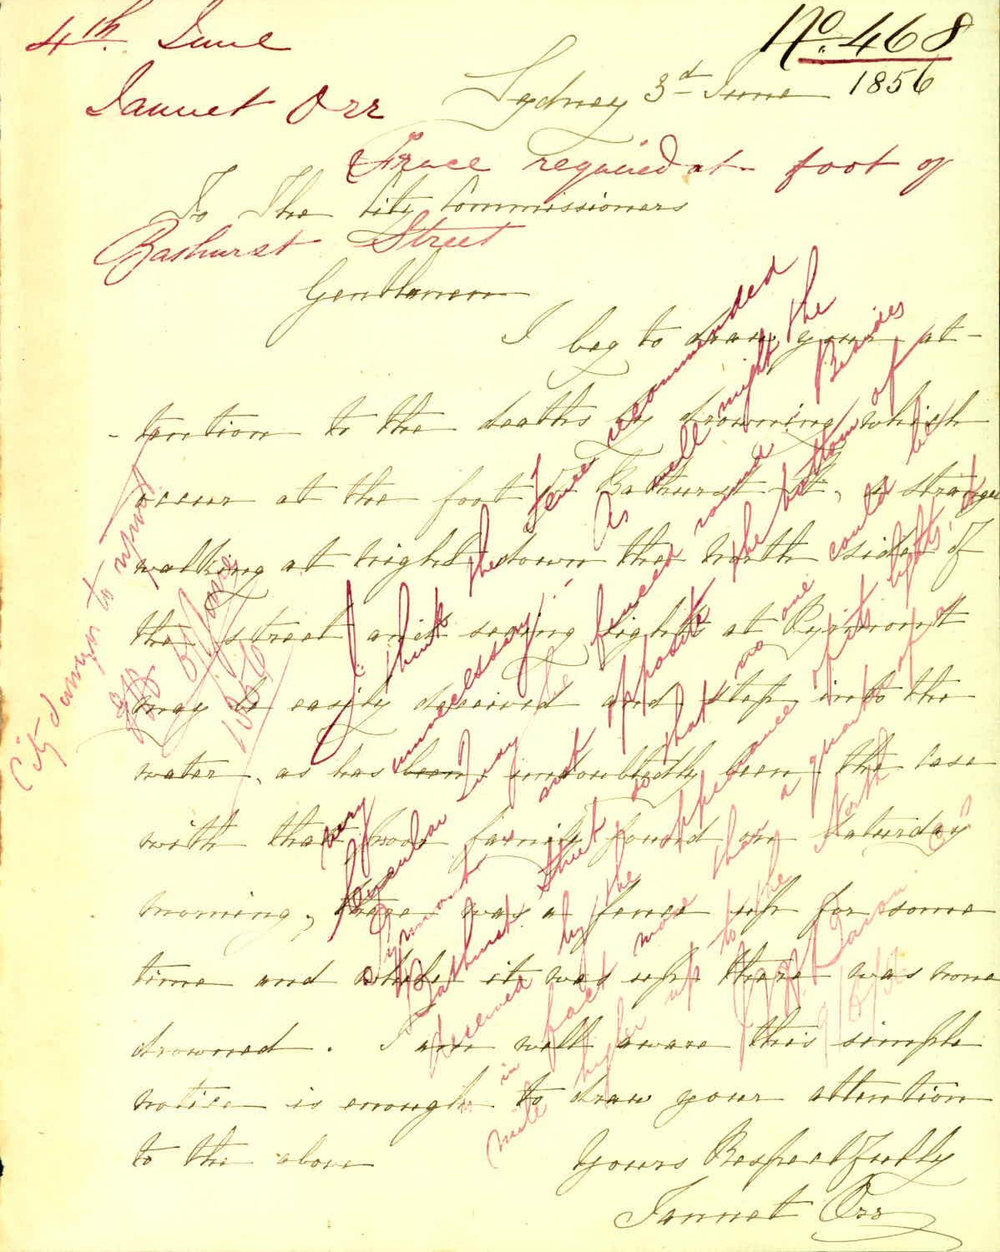 No. 468
4th June
1856
Sydney 3d June
Jannet Orr
Fence required at foot of
Bathurst Street
To The City Commissioners
Gentlemen
I beg to draw your at-
-tention to the deaths by drowning which
occur at the foot of Bathurst St, a stranger
walking at night down the North side of
the street and seeing lights at Pyrmont
may be easily deceived and step into the
water, as has been undoubtedly been the case
with that poor family found on Saturday
morning, there was a fence up for some
time and while it was up there was none
drowned. I am well aware this simple
notice is enough to draw your attention
to the above
Yours Respectfully
Jannet Orr
I think the Fence recommended
very unnecessary, As well might the
Circular Quay be fenced round Besides
Pyrmont is not opposite the bottom of
Bathurst Street so that no one could be
deceived by the appearance of its lights, it
in fact more than a quarter of a
mile higher up to the North
9/6/56
City Surveyor to report
6 June
1856